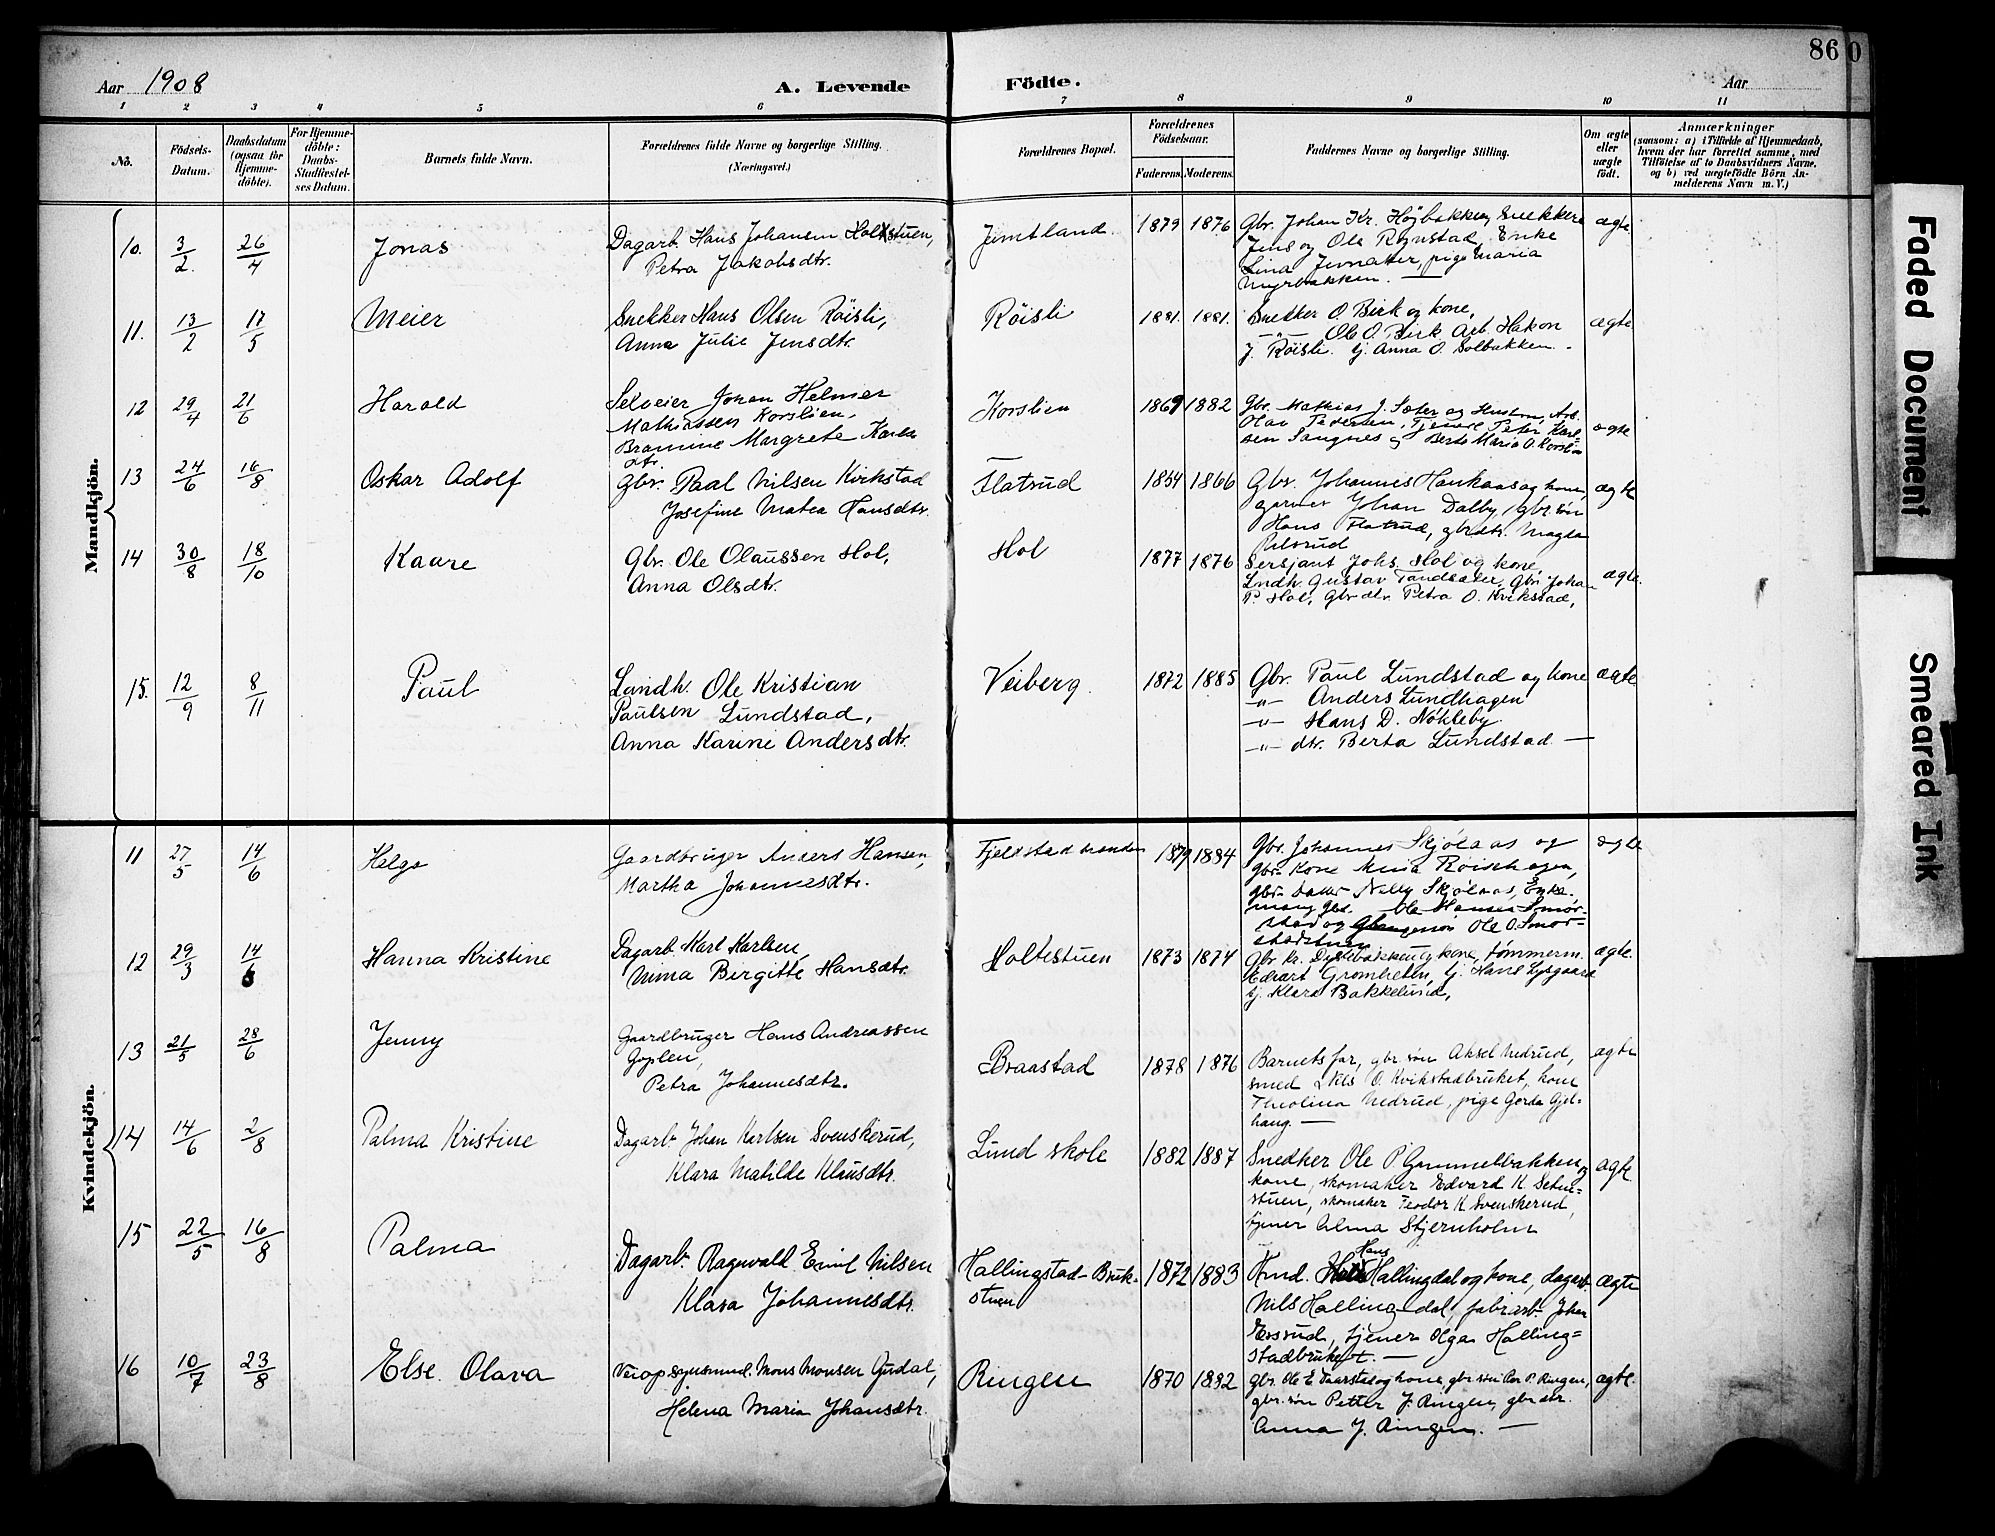 86
0
Aar 1908
A. Levende
Födte.
Aar
1 2 3 4 5 6 7 8 9 10 11
No.
Födsels-Datum.
Daabsdatum (ogsaa för Hjemme-döbte).
For Hjemme-döbte: Daabs-Stadfæstel-ses Datum.
Barnets fulde Navn.
Forældrenes fulde Navne og borgerlige Stilling.
(Næringsvei.)
Forældrenes Bopæl.
Forældrenes Födselsaar.
Faderens. Moderens.
Faddernes Navne og borgerlige Stilling.
Om ægte eller uægte födt.
Anmærkninger
(saasom: a) i Tilfælde af Hjemmedaab,
hvem der har forrettet samme, med
Tilföielse af to Daabsvidners Navne,
og b) ved uægtefödte Börn An-
melderens Navn m. V.)
Mandkjön.
10. 3/2. 26/4 Jonas
Dagarb. Hans Johansen Holtstuen,
Petra Jakobsdtr.
Jemtland. 1879 1876
Gbr. Johan Kr. Højbakken, Snekkere
Jens og Ole Rognstad, Enke
Lina Jevnaker, pige Maria
Myrbakken. —
ægte
11. 13/2 17/5 Meier
Snekker Hans Olsen Röisli,
Anna Julie Jensdtr.
Röisli 1881. 1881.
Snedker O. Birk og kone,
—"— Ole O. Birk Arb. Hakon
J. Röisli. tj. Anna O. Solbakken.
ægte
12 29/4 21/6 Harald
Selveier Johan Helmer
Mathiassen Korslien,
Bramine Margrete Karls
dtr.
Korslien 1869 1882
Gbr. Mathias J. Sæter og Hustru, Arb.
Olav Pedersen, Tjener Peter Karl-
sen Sangnes og Berte Maria O. Korslien
ægte
13 24/6 16/8 Oskar Adolf
Gbr. Paal Nilsen Kvikstad
Josefine Matea Hansdtr.
Flatrud 1854 1866
Gbr. Johannes Haukaas og kone,
garver Johan Dalby, gbr. søn
Hans Flatrud, gbrdtr. Magda
Pilsrud
ægte
14 30/8 18/10 Kaare
Gbr. Ole Olaussen Hol,
Anna Olsdtr.
Hol 1877 1876
Sersjant Johs. Hol og kone,
Lndh. Gustav Tandsæter, Gbr. Johan
P. Hol, Gbr dtr. Petra O. Kvikstad,
ægte.
15. 12/9 8/11 Paul
Landh. Ole Kristian
Paulsen Lundstad,
Anna Karine Andersdtr.
Veiberg. 1872 1885
Gbr. Paul Lundstad og kone
—"— Anders Lundhagen
—"— Hans D. Nökleby.
—"— dtr. Berta Lundstad —
ægte
Kvindekjön.
11 27/5 14/6 Helga
Gaardbruger Anders Hansen,
Martha Johannesdtr.
Fjeldstadbranden 1879 1884
Gbr. Johannes Skjölaas og
gbr. Kone Mina Röisehagen,
gbr. Datter Nelly Skjölaas, Enke-
mang gbr. Ole Hansen Smör-
stad og Ole O. Smör-
stadstuen
ægte
12 29/3 14/6 Hanna Kristine
Dagarb. Karl Karlsen,
Anna Bergitte Hansdtr.
Holtestuen 1873 1874
Gbr. Kr. Dystebakken og kone, tømmerm.
Edvart Gromheten, tj. Hans Lysgaard
tj. Klara Bakkelund,
ægte.
13 21/5 28/6 Jenny
Gaardbruger Hans Andreassen
Goplen,
Petra Johannesdtr.
Braastad 1878 1876
Barnets far, gbr. søn Aksel Nedrud,
smed Nils O. Kvikstadbruket, kone
Theolina Nedrud, pige Gerda Gjel-
hang. —
ægte
14 14/6 2/8 Palma Kristine
Dagarb. Johan Karlsen Svenskerud,
Klara Matilde Klausdtr.
Lund skole 1882 1887
Snedker Ole P. Gammelbakken og
kone, skomaker Edvard K. Setne-
stuen, skomaker Teodor K. Svenskerud,
tjener Alma Stjernholm
ægte
15 22/5 16/8 Palma
Dagarb. Ragnvald Emil Nilsen
Klara Johannesdtr.
Hallingstad-Bruk-
stuen
1872 1883
Kmd. Hans Hallingdal og kone, dagarb.
Nils Hallingdal, fabr.arb. Johan
Essrud, tjener Olga Halling=
stadbruket. —
ægte
16 10/7 23/8 Else Olava
Veiopsynsmnd. Mons Monsen Gjudal,
Helena Maria Johansdtr.
Ringen 1870 1882
gbr. Ole E. Taarstad og kone, gbr. søn Per P. Ringen,
gbr. søn Petter J. Ringen, gbr dtr.
Anna J. Ringen. —
ægte.
Faded Document
Smeared Ink